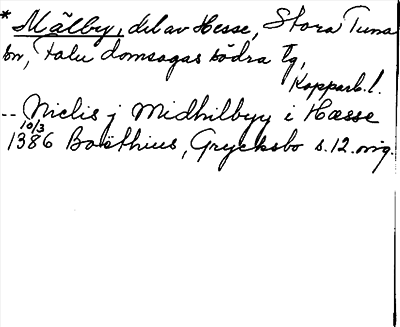 * Mälby, del av Hesse, Stora Tuna
sn, Falu domsagas södra tg,
Kopparb. l.
-- Nielis j Midhilbyy i Hæsse
10/3
1386 Boëthius, Grycksbo s. 12. orig.